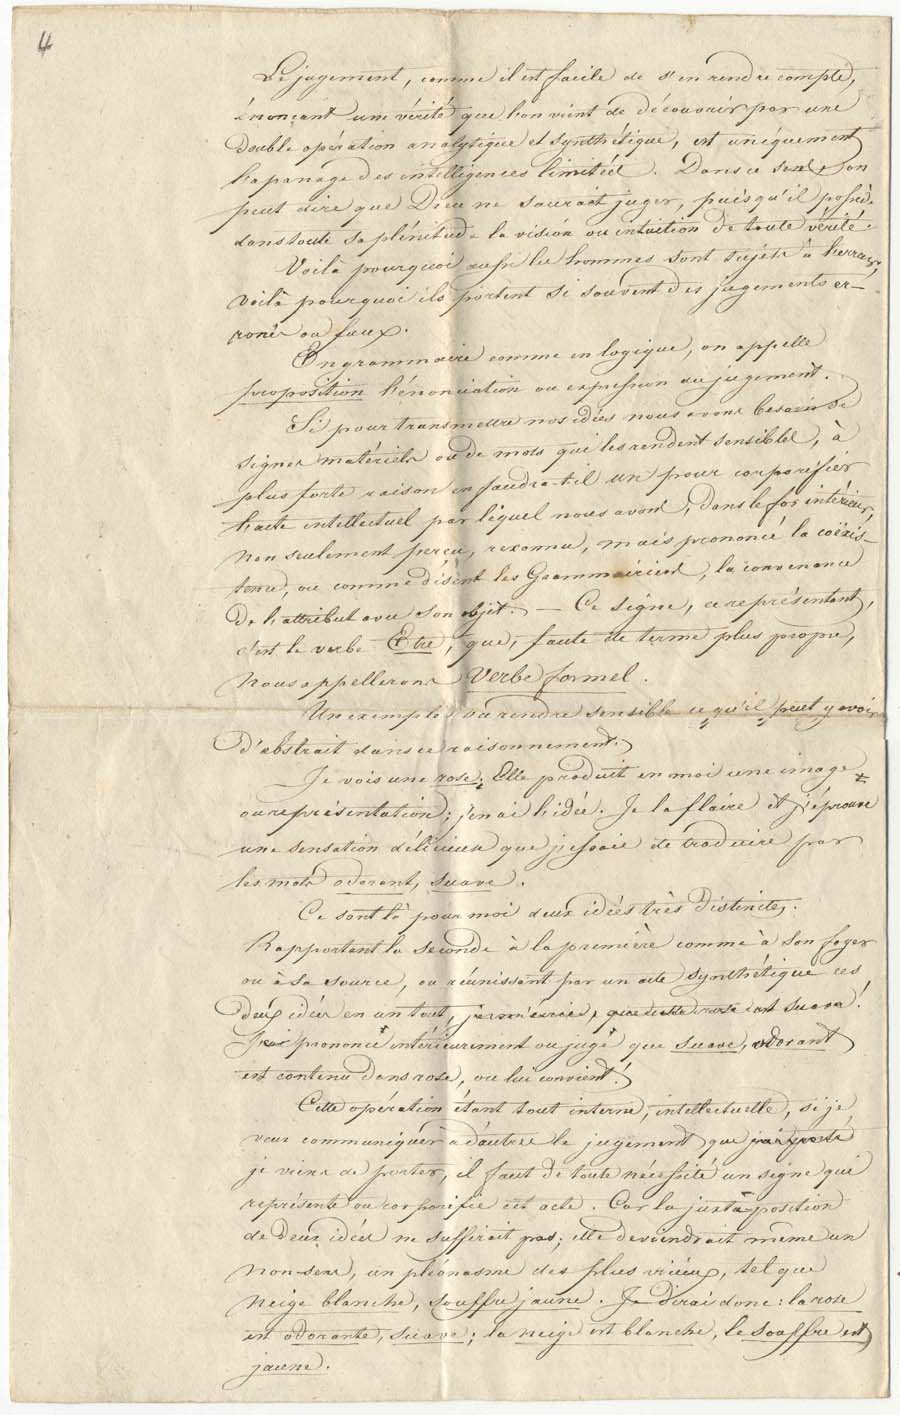 4
Le jugement, comme il est facile de s'en rendre compte,
énonçant une vérité que l'on vient de découvrir par une
double opération analytique et synthétique, est uniquement
l'apanage des intelligences limitées. Dans ce sens, on
peut dire que Dieu ne saurait juger, puisqu'il possède
dans toute sa plénitude la vision ou intuition de toute vérité.
Voilà pourquoi aussi les hommes sont sujets à l'erreur,
voilà pourquoi ils portent si souvent des jugements er-
ronés ou faux.
En grammaire comme en logique, on appelle
proposition l'énonciation ou expression du jugement.
Si pour transmettre nos idées nous avons besoin de
signes matériels ou de mots qui les rendent sensibles, à
plus forte raison en faudra-t-il un pour corporéfier
l'acte intellectuel par lequel nous avons, dans le for intérieur,
non seulement perçu, reconnu, mais prononcé la coëxis-
tence, ou comme disent les Grammairiens, la convenance
de l'attribut avec son objet. — Ce signe, ce représentant,
c'est le verbe Etre, que, faute de terme plus propre,
nous appellerons Verbe formel.
Un exemple va rendre sensible ce qu'il peut y avoir
d'abstrait dans ce raisonnement.
Je vois une rose; Elle produit en moi une image
ou représentation; j'en ai l'idée. Je la flaire et j'éprouve
une sensation délicieuse que j'essaie de traduire par
les mots odorant, suave.
Ce sont là pour moi deux idées très distinctes.
Rapportant la seconde à la première comme à son foyer
ou à sa source, ou réunissant par un acte synthétique ces
deux idées en un tout, je m'écrie, que cette rose est suave!
J'ai prononcé intérieurement ou jugé que suave, odorant
est contenu dans rose, ou lui convient!
Cette opération étant tout interne, intellectuelle, si je
veux communiquer à d'autres le jugement que j'ai porté
je viens de porter, il faut de toute nécessité un signe qui
représente ou corporifie cet acte. Car la juxta-position
de deux idées ne suffirait pas; elle deviendrait même un
non-sens, un pléonasme des plus vicieux, tel que
neige blanche, souffre jaune. Je dirai donc: la rose
est odorante, suave; la neige est blanche, le souffre est
jaune.